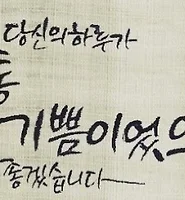 당신의 하루가
기쁨이었으
좋겠습니다